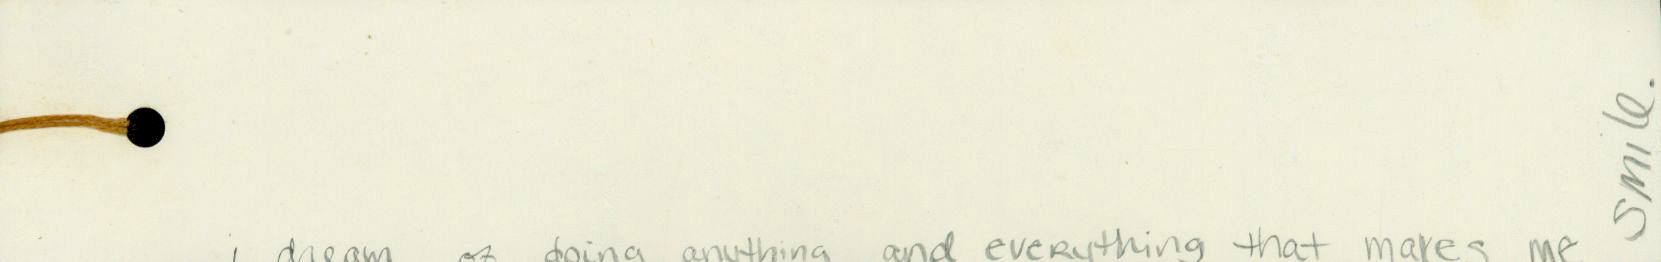 i dream of doing anything and everything that makes me
smile.